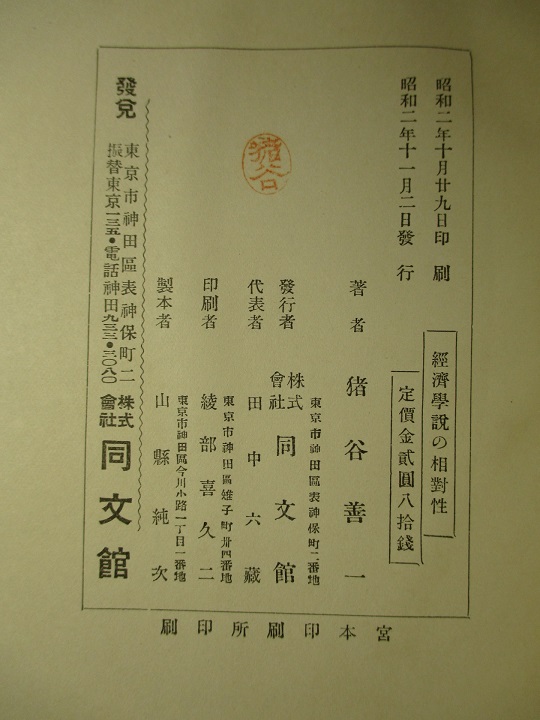 昭和二年十月廿九日印刷
昭和二年十一月二日發行
經濟學說の相對性
定價金貳圓八拾錢
著者 猪谷善一
東京市神田區表神保町二番地
發行者 株式會社 同文館
代表者 田中六藏
東京市神田區雉子町卅四番地
印刷者 綾部喜久二
東京市神田區今川小路一丁目一番地
製本者 山縣純次
猪谷
發兌
東京市神田區表神保町二
振替東京一三五・電話神田九三三・三〇八〇
株式會社 同文館
宮本印刷所印刷